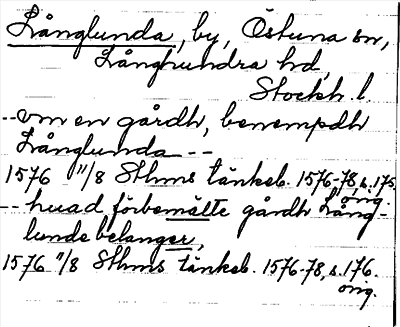 Långlunda, by, Östuna sn,
Långhundra hd,
Stockh. l.
--om en gårdh, benempdh
Långlunda --
1576 11/8 Sthms tänkeb. 1576-78, s. 175.
orig.
-- huad förbemälte gårdh Lång-
lunde belanger,
1576 11/8 Sthms tänkeb. 1576-78, s. 176.
orig.